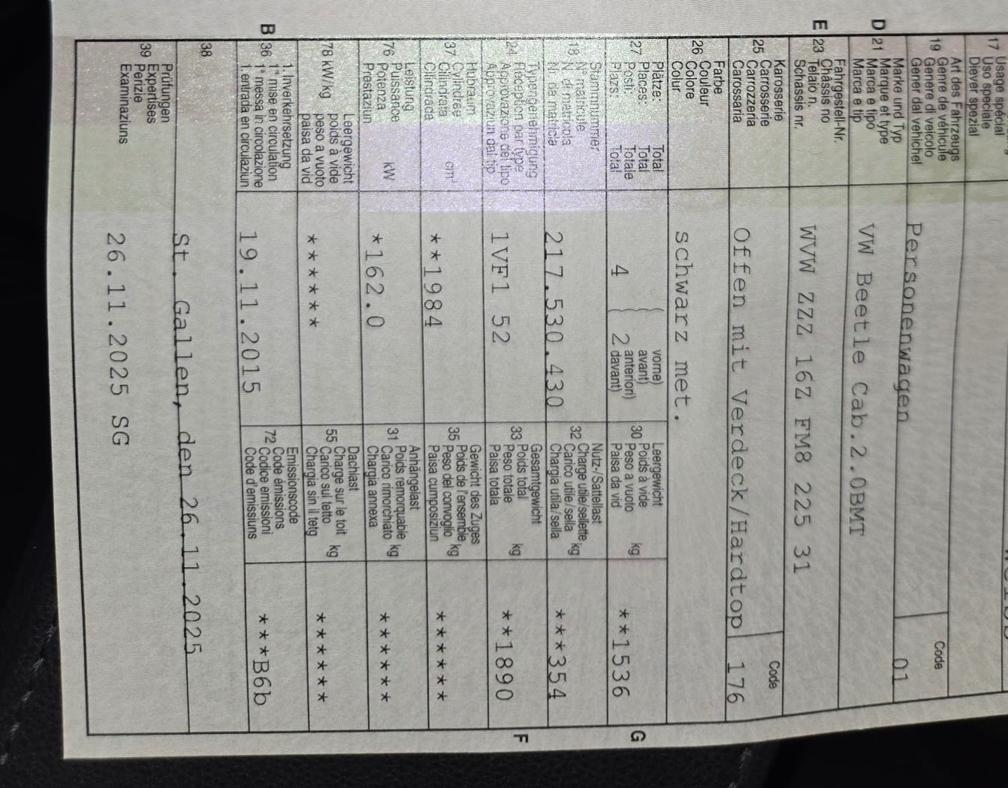 17 Usage spécial
Uso speciale
Diever spezial
Art des Fahrzeugs
19 Genre de véhicule
Genere di veicolo
Gener dal vehichel
Personenwagen
Code
01
D 21 Marke und Typ
Marque et type
Marca e tipo
Marca e tip
VW Beetle Cab.2.0BMT
E 23 Fahrgestell-Nr.
Châssis no
Telaio n.
Schassis nr.
WVW ZZZ 16Z FM8 225 31
25 Karosserie
Carrosserie
Carrozzeria
Carrossaria
Offen mit Verdeck/Hardtop
Code
176
26 Farbe
Couleur
Colore
Colur
schwarz met.
27 Plätze: Total
Places: Total
Posti: Totale
Plazs: Total
4
2
vorne)
avant)
anteriori)
davant)
30 Leergewicht
Poids à vide
Peso a vuoto
Paisa da vid
kg
**1536
G
18 Stammnummer
N° matricule
N. di matricola
Nr. da matricla
217.530.430
32 Nutz-/Sattellast
Charge utile/sellette
Carico utile/sella
Chargia utila/sella
kg
***354
24 Typengenehmigung
Réception par type
Approvazione del tipo
Approvaziun dal tip
1VF1 52
33 Gesamtgewicht
Poids total
Peso totale
Paisa totala
kg
**1890
F
37 Hubraum
Cylindrée
Cilindrata
Cilindrada
cm³
**1984
35 Gewicht des Zuges
Poids de l'ensemble
Peso del convoglio
Paisa cumposiziun
kg
******
76 Leistung
Puissance
Potenza
Prestaziun
kW
*162.0
31 Anhängelast
Poids remorquable
Carico rimorchiato
Chargia annexa
kg
******
78 kW/kg
Leergewicht
poids à vide
peso a vuoto
paisa da vid
*****
55 Dachlast
Charge sur le toit
Carico sul tetto
Chargia sin il tetg
kg
******
B 36 1. Inverkehrsetzung
1re mise en circulation
1a messa in circolazione
1. entrada en circulaziun
19.11.2015
72 Emissionscode
Code émissions
Codice emissioni
Code d'emissiuns
***B6b
38
St. Gallen, den 26.11.2025
39 Prüfungen
Expertises
Perizie
Examinaziuns
26.11.2025 SG